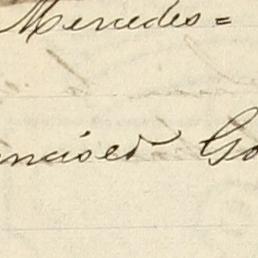 Mercedes=
ancisco Go